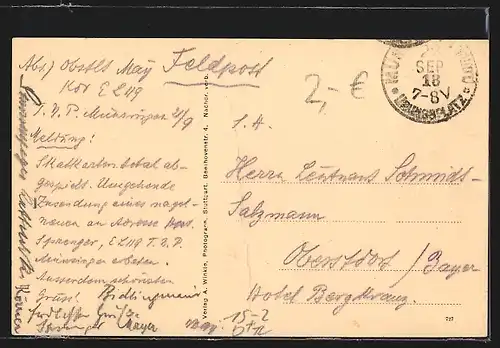 Abs) Obstlt May
Feldpost
Kdr E L 119
T. Ü. P. Münsingen 21/9
Meldung!
Skatkarten total ab-
gespielt. Umgehende
Zusendung eines nagel-
neuen an Adresse
Sprenger, E L 119 T. Ü. P.
Münsingen erbeten.
Ausserdem schönsten
Gruss!
Herzlichste Grüße
Sprenger Mayer
Verlag A. Winkle, Photograph, Stuttgart, Beethovenstr. 4. Nachdr. verb.
2,- €
SEP
18
7-8V
ÜBUNGSPLATZ
S. H.
Herrn Leutnant Schmidt-
Salzmann
Oberstdorf / Bayer
Hotel Bergkranz
15-2